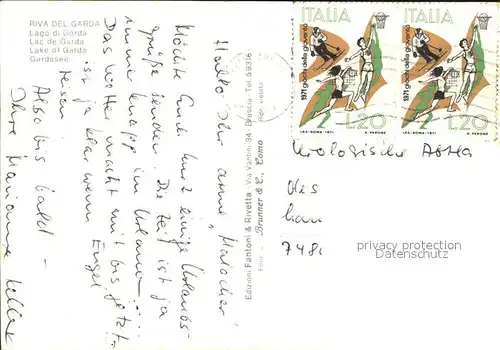 RIVA DEL GARDA
Lago di Garda
Lac de Garde
Lake of Garda
Gardasee
Hallo Ihr armen Malocher,
Möchte Euch kurz einige Urlaubs-
grüße senden. Die Zeit ist ja
immer knapp im Urlaub.
Das Wetter macht mit bis jetzt,
ist ja klar wenn Engel
reisen.
Also bis bald –
Ihre Marianne
Edizioni Fantoni & Rivetta - Via Vannini 34 - Brescia Tel. 59316
Foto Brunner & C., Como
Rip. vietata
ITALIA
1971 giochi della gioventù
L.20
I.P.S.-ROMA-1971
A. PERONE
ITALIA
1971 giochi della gioventù
L.20
I.P.S.-ROMA-1971
A. PERONE
Urologische
748
privacy protection
DATENSCHUTZ